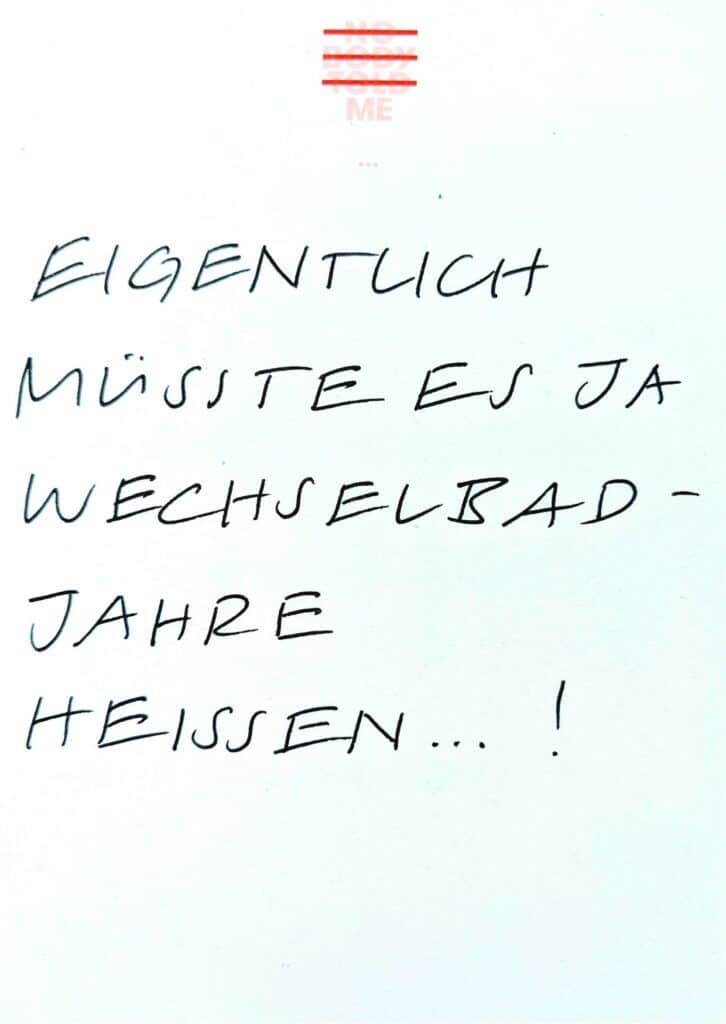 NO
BODY
TOLD
ME
...
EIGENTLICH
MÜSSTE ES JA
WECHSELBAD-
JAHRE
HEISSEN... !